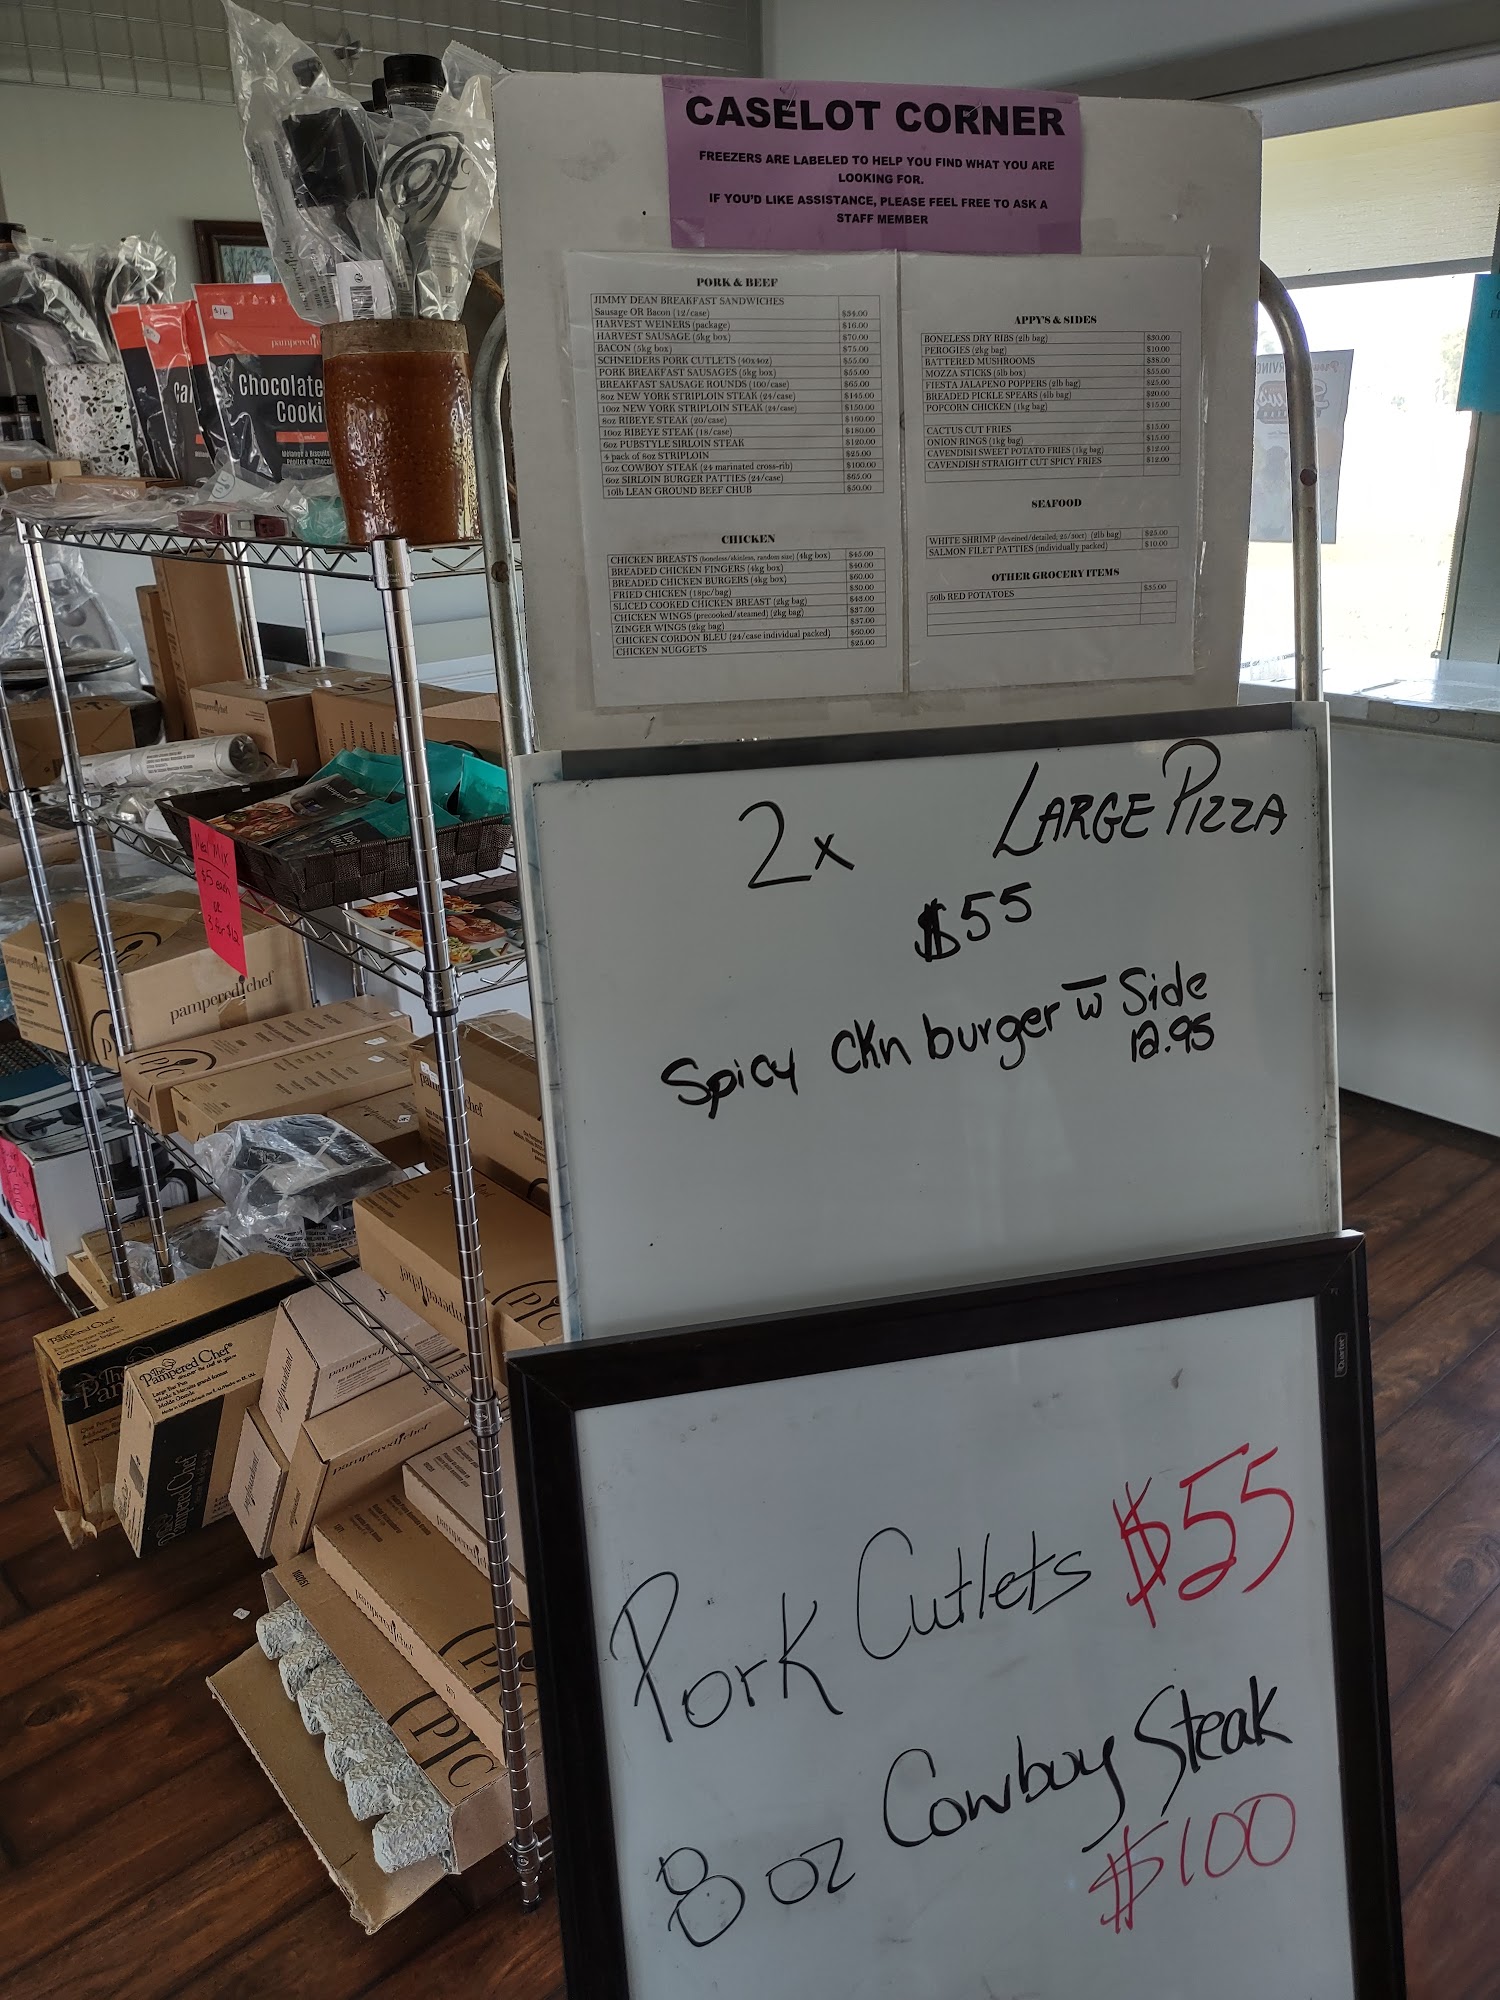 CASELOT CORNER
FREEZERS ARE LABELED TO HELP YOU FIND WHAT YOU ARE
LOOKING FOR.
IF YOU'D LIKE ASSISTANCE, PLEASE FEEL FREE TO ASK A
STAFF MEMBER
PORK & BEEF
JIMMY DEAN BREAKFAST SANDWICHES
Sausage OR Bacon (12/case) $34.00
HARVEST WEINERS (package) $16.00
HARVEST SAUSAGE (5kg box) $70.00
BACON (5kg box) $75.00
SCHNEIDERS PORK CUTLETS (40x4oz) $55.00
PORK BREAKFAST SAUSAGES (5kg box) $55.00
BREAKFAST SAUSAGE ROUNDS (100/case) $65.00
8oz NEW YORK STRIPLOIN STEAK (24/case) $145.00
10oz NEW YORK STRIPLOIN STEAK (24/case) $150.00
8oz RIBEYE STEAK (20/case) $160.00
10oz RIBEYE STEAK (18/case) $180.00
6oz PUBSTYLE SIRLOIN STEAK $120.00
4 pack of 8oz STRIPLOIN $25.00
6oz COWBOY STEAK (24 marinated cross-rib) $100.00
6oz SIRLOIN BURGER PATTIES (24/case) $65.00
10lb LEAN GROUND BEEF CHUB $50.00
CHICKEN
CHICKEN BREASTS (boneless/skinless, random size) (4kg box) $45.00
BREADED CHICKEN FINGERS (4kg box) $40.00
BREADED CHICKEN BURGERS (4kg box) $60.00
FRIED CHICKEN (18pc/bag) $30.00
SLICED COOKED CHICKEN BREAST (2kg bag) $43.00
CHICKEN WINGS (precooked/steamed) (2kg bag) $37.00
ZINGER WINGS (2kg bag) $37.00
CHICKEN CORDON BLEU (24/case individual packed) $60.00
CHICKEN NUGGETS $25.00
APPY'S & SIDES
BONELESS DRY RIBS (2lb bag) $30.00
PEROGIES (2kg bag) $10.00
BATTERED MUSHROOMS $38.00
MOZZA STICKS (5lb box) $55.00
FIESTA JALAPENO POPPERS (2lb bag) $25.00
BREADED PICKLE SPEARS (4lb bag) $20.00
POPCORN CHICKEN (1kg bag) $15.00
CACTUS CUT FRIES $15.00
ONION RINGS (1kg bag) $15.00
CAVENDISH SWEET POTATO FRIES (1kg bag) $12.00
CAVENDISH STRAIGHT CUT SPICY FRIES $12.00
SEAFOOD
WHITE SHRIMP (deveined/detailed; 25/30ct) (2lb bag) $25.00
SALMON FILET PATTIES (individually packed) $10.00
OTHER GROCERY ITEMS
50lb RED POTATOES $35.00
2x LARGE PIZZA
$55
Spicy CKn burger w̄ Side
12.95
Quartet
Pork Cutlets $55
8 oz Cowboy Steak
$100
pampered chef
Chocolate
Cooki
Meal Mix
$5 each
or
3 for $12
pampered chef
pampered chef
The Pampered Chef
The Pampered Chef
Large Bar Pan
pampered chef
pampered chef